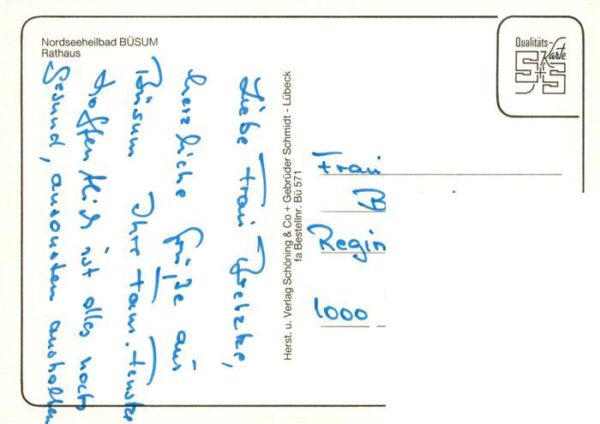 Nordseeheilbad BÜSUM
Rathaus
Qualitäts-
Karte
S+S
Liebe Frau
herzliche Grüße aus
Büsum Ihre Fam.
hoffentlich ist alles noch
Gesund, ansonsten aushalten
Herst. u. Verlag Schöning & Co + Gebrüder Schmidt - Lübeck
fa Bestellnr. Bü 571
Frau
B
Regin
1000